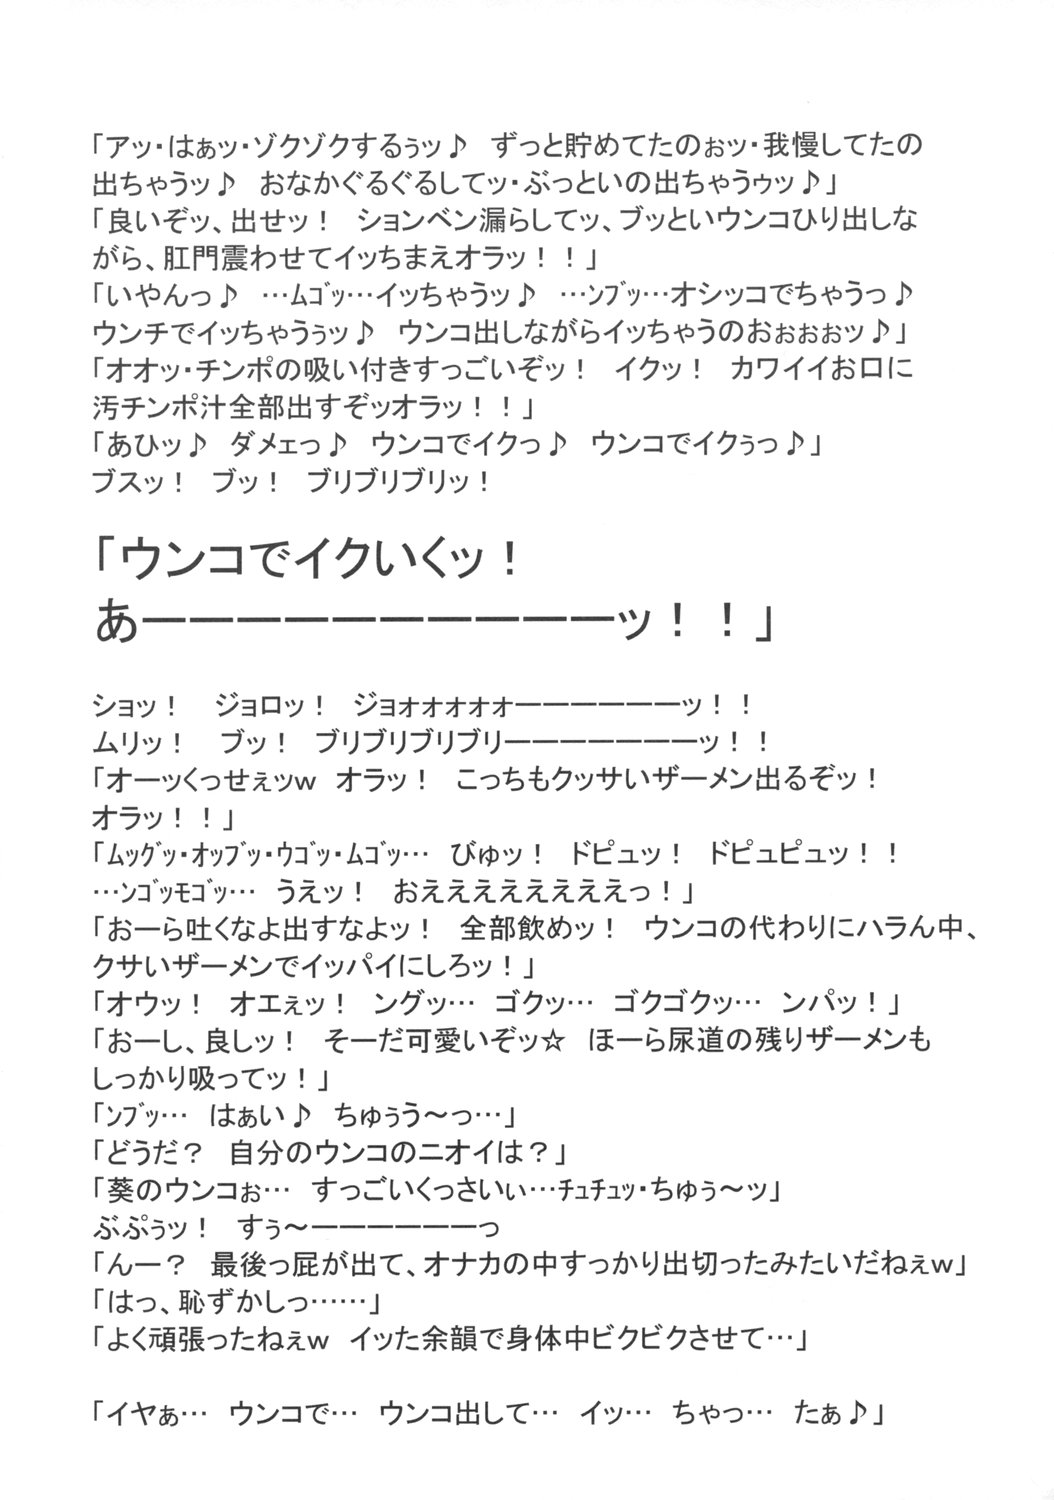 「アッ・はぁッ・ゾクゾクするぅッ♪　ずっと貯めてたのぉッ・我慢してたの
出ちゃうッ♪　おなかぐるぐるしてッ・ぶっといの出ちゃうゥッ♪」
「良いぞッ、出せッ！　ションベン漏らしてッ、ブッといウンコひり出しな
がら、肛門震わせてイッちまえオラッ！！」
「いやんっ♪　…ﾑｺﾞｯ…イッちゃうッ♪　…ﾝﾌﾞｯ…オシッコでちゃうっ♪
ウンチでイッちゃうぅッ♪　ウンコ出しながらイッちゃうのおぉぉぉッ♪」
「オオッ・チンポの吸い付きすっごいぞッ！　イクッ！　カワイイお口に
汚チンポ汁全部出すぞッオラッ！！」
「あひッ♪　ダメェっ♪　ウンコでイクっ♪　ウンコでイクぅっ♪」
ブスッ！　ブッ！　ブリブリブリッ！
「ウンコでイクいくッ！
あーーーーーーーーーーッ！！」
ショッ！　ジョロッ！　ジョォォォォォーーーーーーッ！！
ムリッ！　ブッ！　ブリブリブリブリーーーーーーーッ！！
「オーッくっせぇッｗ　オラッ！　こっちもクッサいザーメン出るぞッ！
オラッ！！」
「ﾑｯｸﾞｯ・ｵｯﾌﾞｯ・ｳｺﾞｯ・ﾑｺﾞｯ…　びゅッ！　ドピュッ！　ドピュピュッ！！
…ﾝｺﾞｯﾓｺﾞｯ…　うえッ！　おえええええええええっ！」
「おーら吐くなよ出すなよッ！　全部飲めッ！　ウンコの代わりにハラん中、
クサいザーメンでイッパイにしろッ！」
「オウッ！　オエぇッ！　ングッ…　ゴクッ…　ゴクゴクッ…　ンパッ！」
「おーし、良しッ！　そーだ可愛いぞッ☆　ほーら尿道の残りザーメンも
しっかり吸ってッ！」
「ﾝﾌﾞｯ…　はぁい♪　ちゅぅう～っ…」
「どうだ？　自分のウンコのニオイは？」
「葵のウンコぉ…　すっごいくっさいぃ…ﾁｭﾁｭｯ・ちゅぅ～ッ」
ぶぷぅッ！　すぅ～ーーーーーーっ
「んー？　最後っ屁が出て、オナカの中すっかり出切ったみたいだねぇｗ」
「はっ、恥ずかしっ……」
「よく頑張ったねぇｗ　イッた余韻で身体中ビクビクさせて…」
「イヤぁ…　ウンコで…　ウンコ出して…　イッ…　ちゃっ…　たぁ♪」